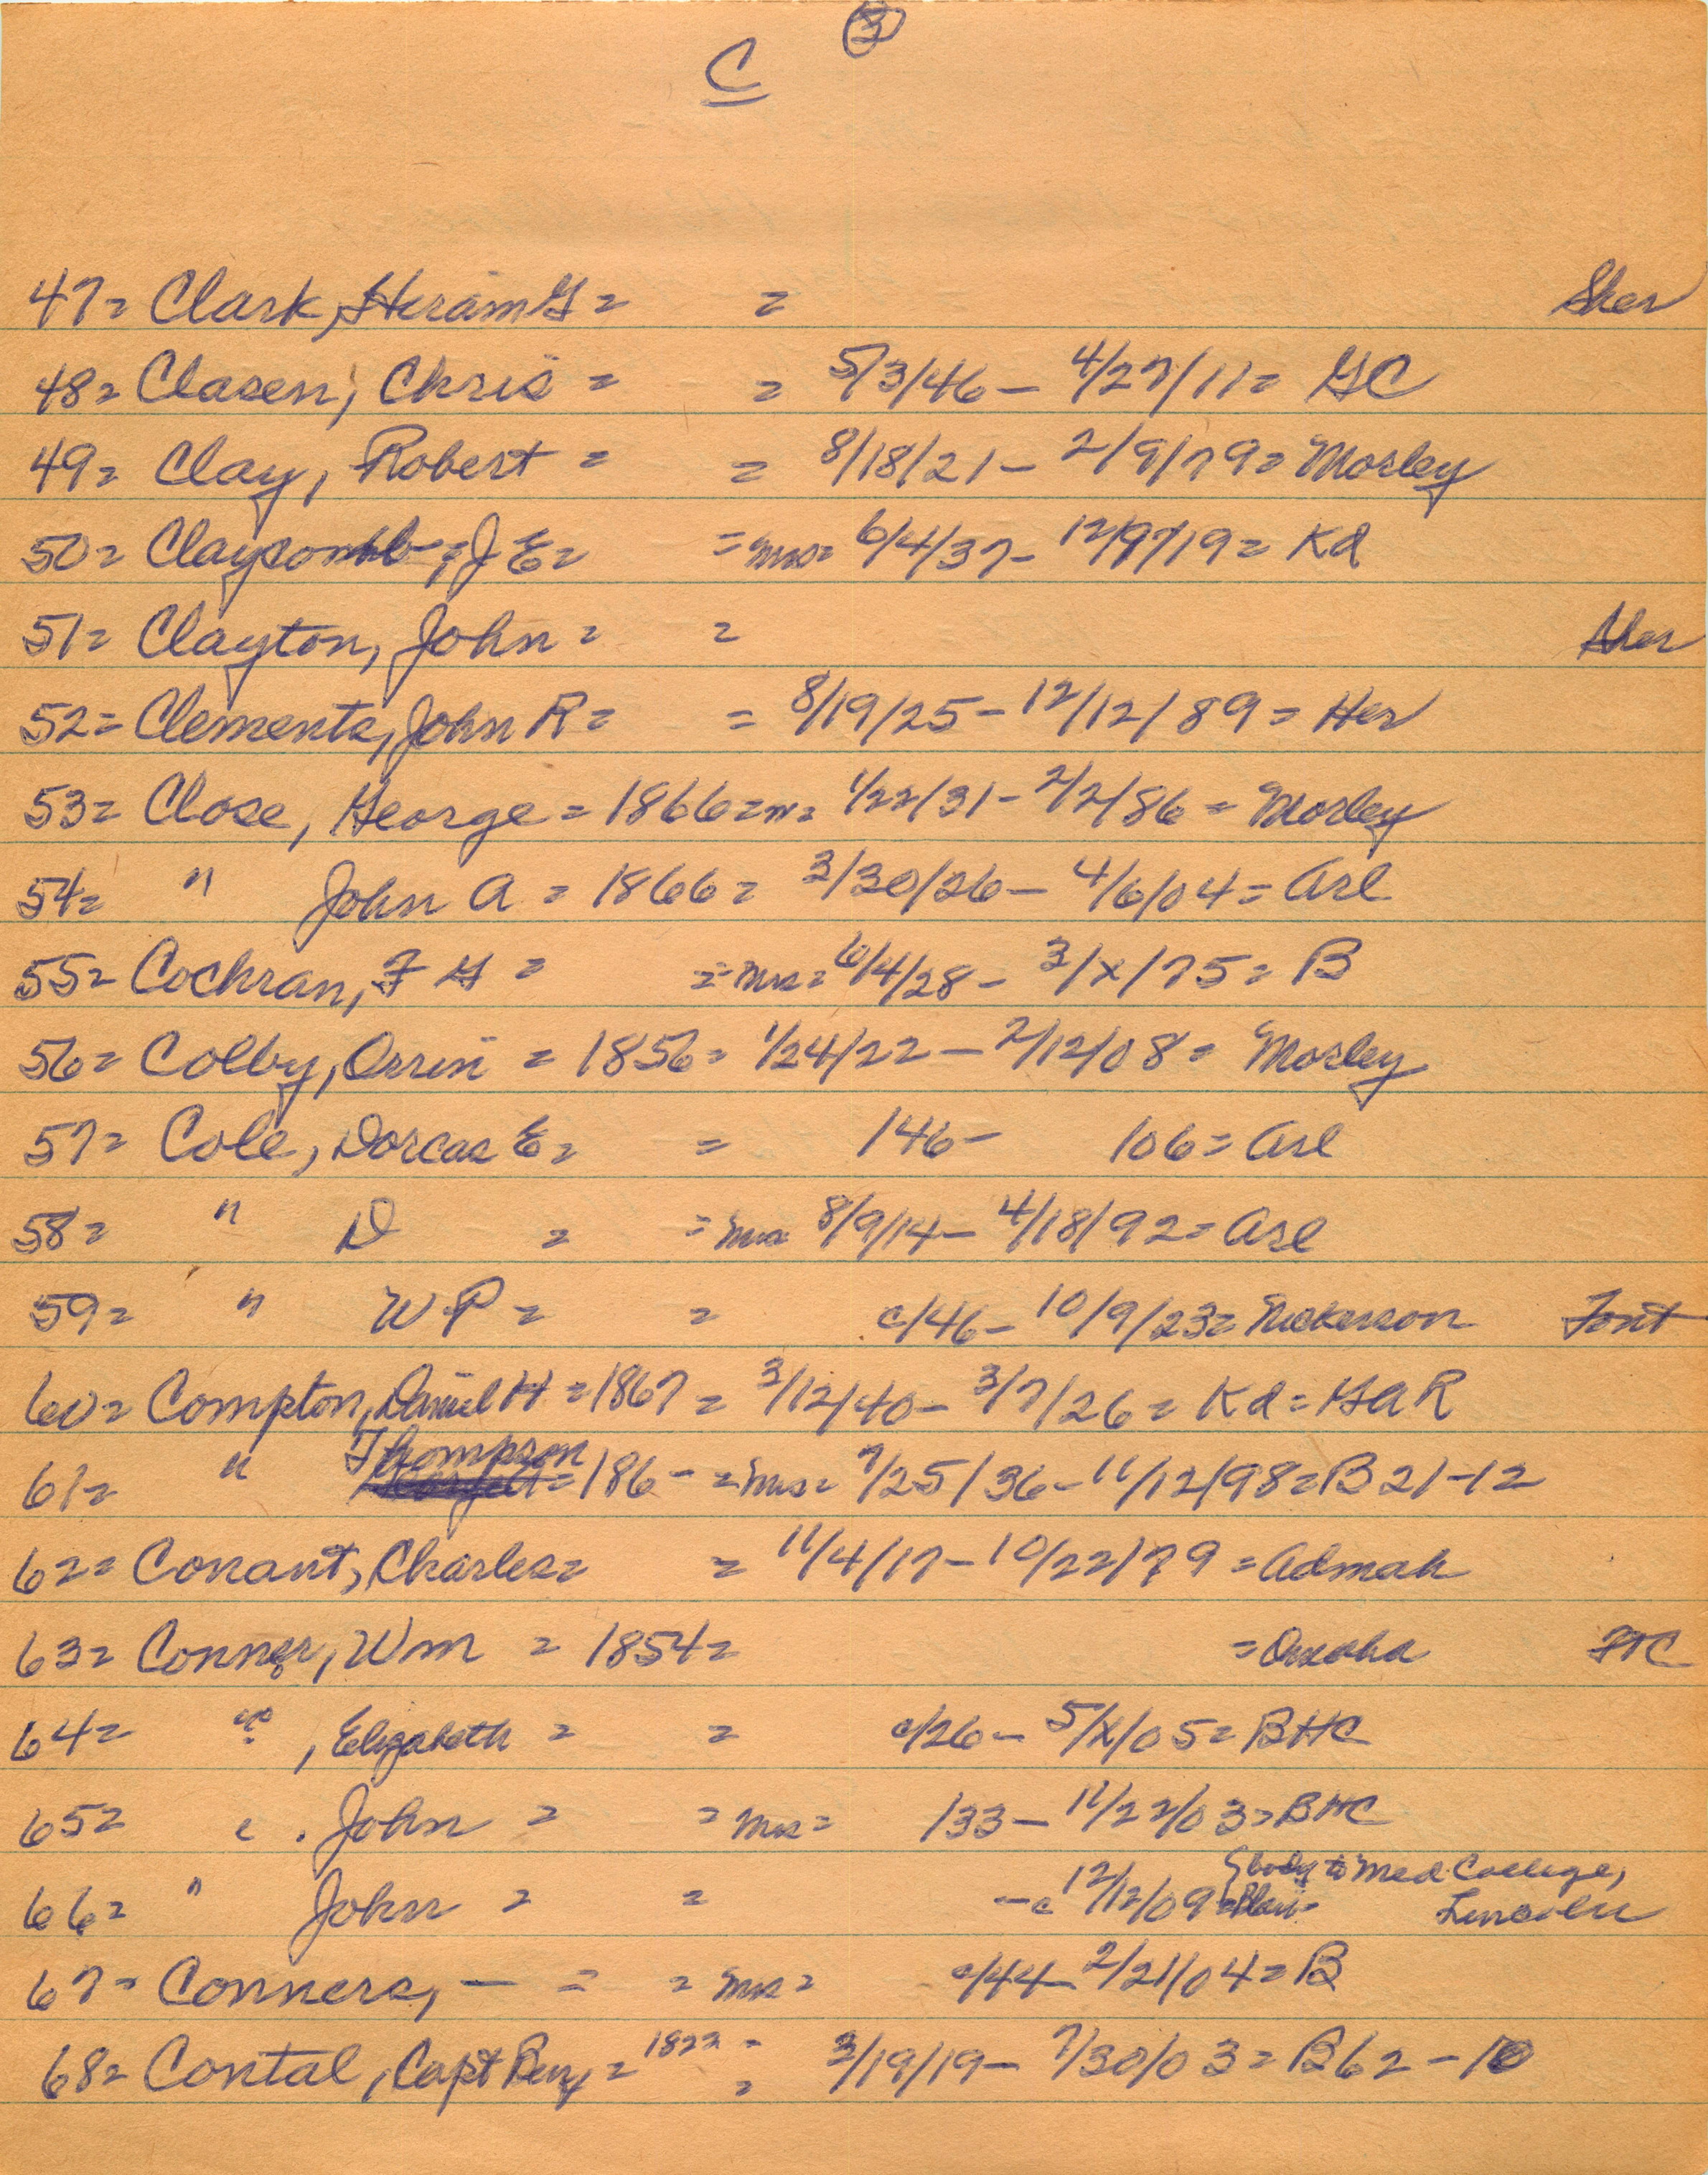 3
C
47= Clark, Hiram G = = Sher
48= Clasen, Chris = = 5/3/46 - 4/27/11 = GC
49= Clay, Robert = = 8/18/21 - 2/9/79 = Morley
50= Claycomb, J E = = mrs = 6/4/37 - 12/9/19 = Kd
51= Clayton, John = = Sher
52= Clements, John R = = 8/19/25 - 12/12/89 = Her
53= Close, George = 1866 = m = 1/22/31 - 2/2/86 = Morley
54= " John A = 1866 = 3/30/26 - 4/6/04 = Arl
55= Cochran, F G = = mrs = 6/4/28 - 3/x/75 = B
56= Colby, Orrin = 1856 = 1/24/22 - 2/12/08 = Morley
57= Cole, Dorcas E = = /46 - /06 = Arl
58= " D = = mrs 8/9/14 - 4/18/92 = Arl
59= " W P = = c/46 - 10/9/23 = Nickerson Font
60= Compton, Daniel H = 1867 = 3/12/40 - 3/7/26 = Kd = GAR
61= " Thompson = 186- = mrs = 7/25/36 - 11/12/98 = B 21-12
62= Conant, Charles = = 11/4/17 - 10/22/79 = Admah
63= Conner, Wm = 1854 = = Omaha FtC
64= " , Elizabeth = = c/26 - 5/x/05 = BHC
65= " John = = mrs = /33 - 11/22/03 = BHC
66= " John = = - c 12/12/09 = Blair = body to Med College, Lincoln
67= Conners, - = = mrs = c/44 - 2/21/04 = B
68= Contal, Capt Benj = 1822 = = 3/19/19 - 7/30/03 = B 62 - 10